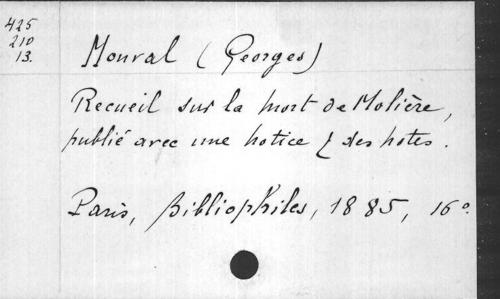 425
210
13.
Monval (Georges)
Recueil sur la mort de Molière,
publié avec une notice & des notes.
Paris, Bibliophiles, 1885, 16°.